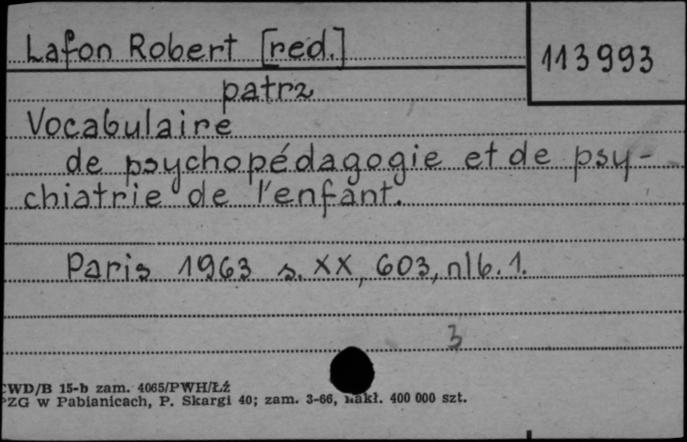 Lafon Robert [red.]
113993
patrz
Vocabulaire
de psychopédagogie et de psy-
chiatrie de l'enfant.
Paris 1963 s. XX, 603, nlb. 1.
3
CWD/B 15-b zam. 4065/PWH/Łż
PZG w Pabianicach, P. Skargi 40; zam. 3-66, nakł. 400 000 szt.